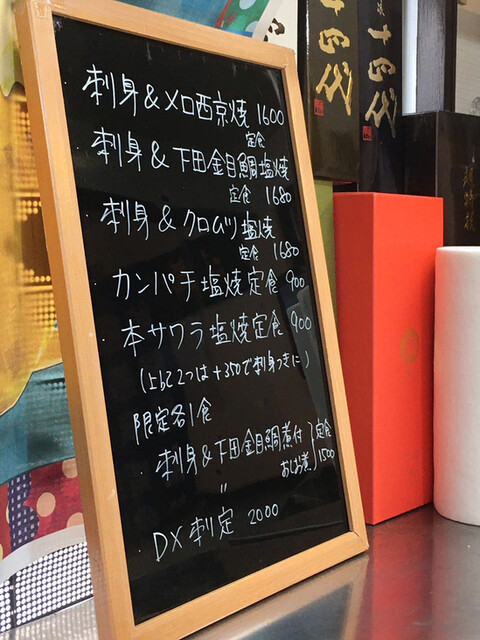 ・刺身&メロ西京焼 1600
定食
・刺身&下田金目鯛塩焼
定食 1680
・刺身&クロムツ塩焼
定食 1680
・カンパチ塩焼定食 900
・本サワラ塩焼定食 900
(上記2つは+350で刺身つきに)
限定各1食
・刺身&下田金目鯛煮付 定食
〃 あしお煮 1500
・DX刺定 2000
十四代
十四代